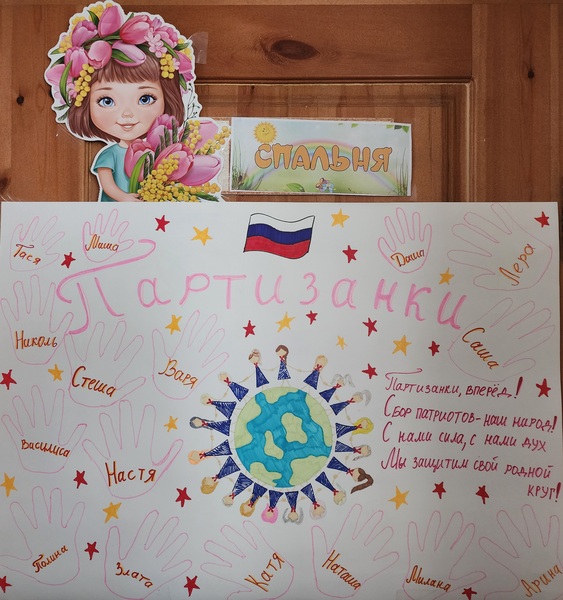 СПАЛЬНЯ
Тася
Миша
Даша
Лера
Партизанки
Николь
Саша
Стеша
Варя
Партизанки, вперёд!
Сбор патриотов-наш народ!
С нами сила, с нами дух
Мы защитим свой родной
круг!
Василиса
Настя
Полина
Злата
Катя
Наташа
Милана
Арина